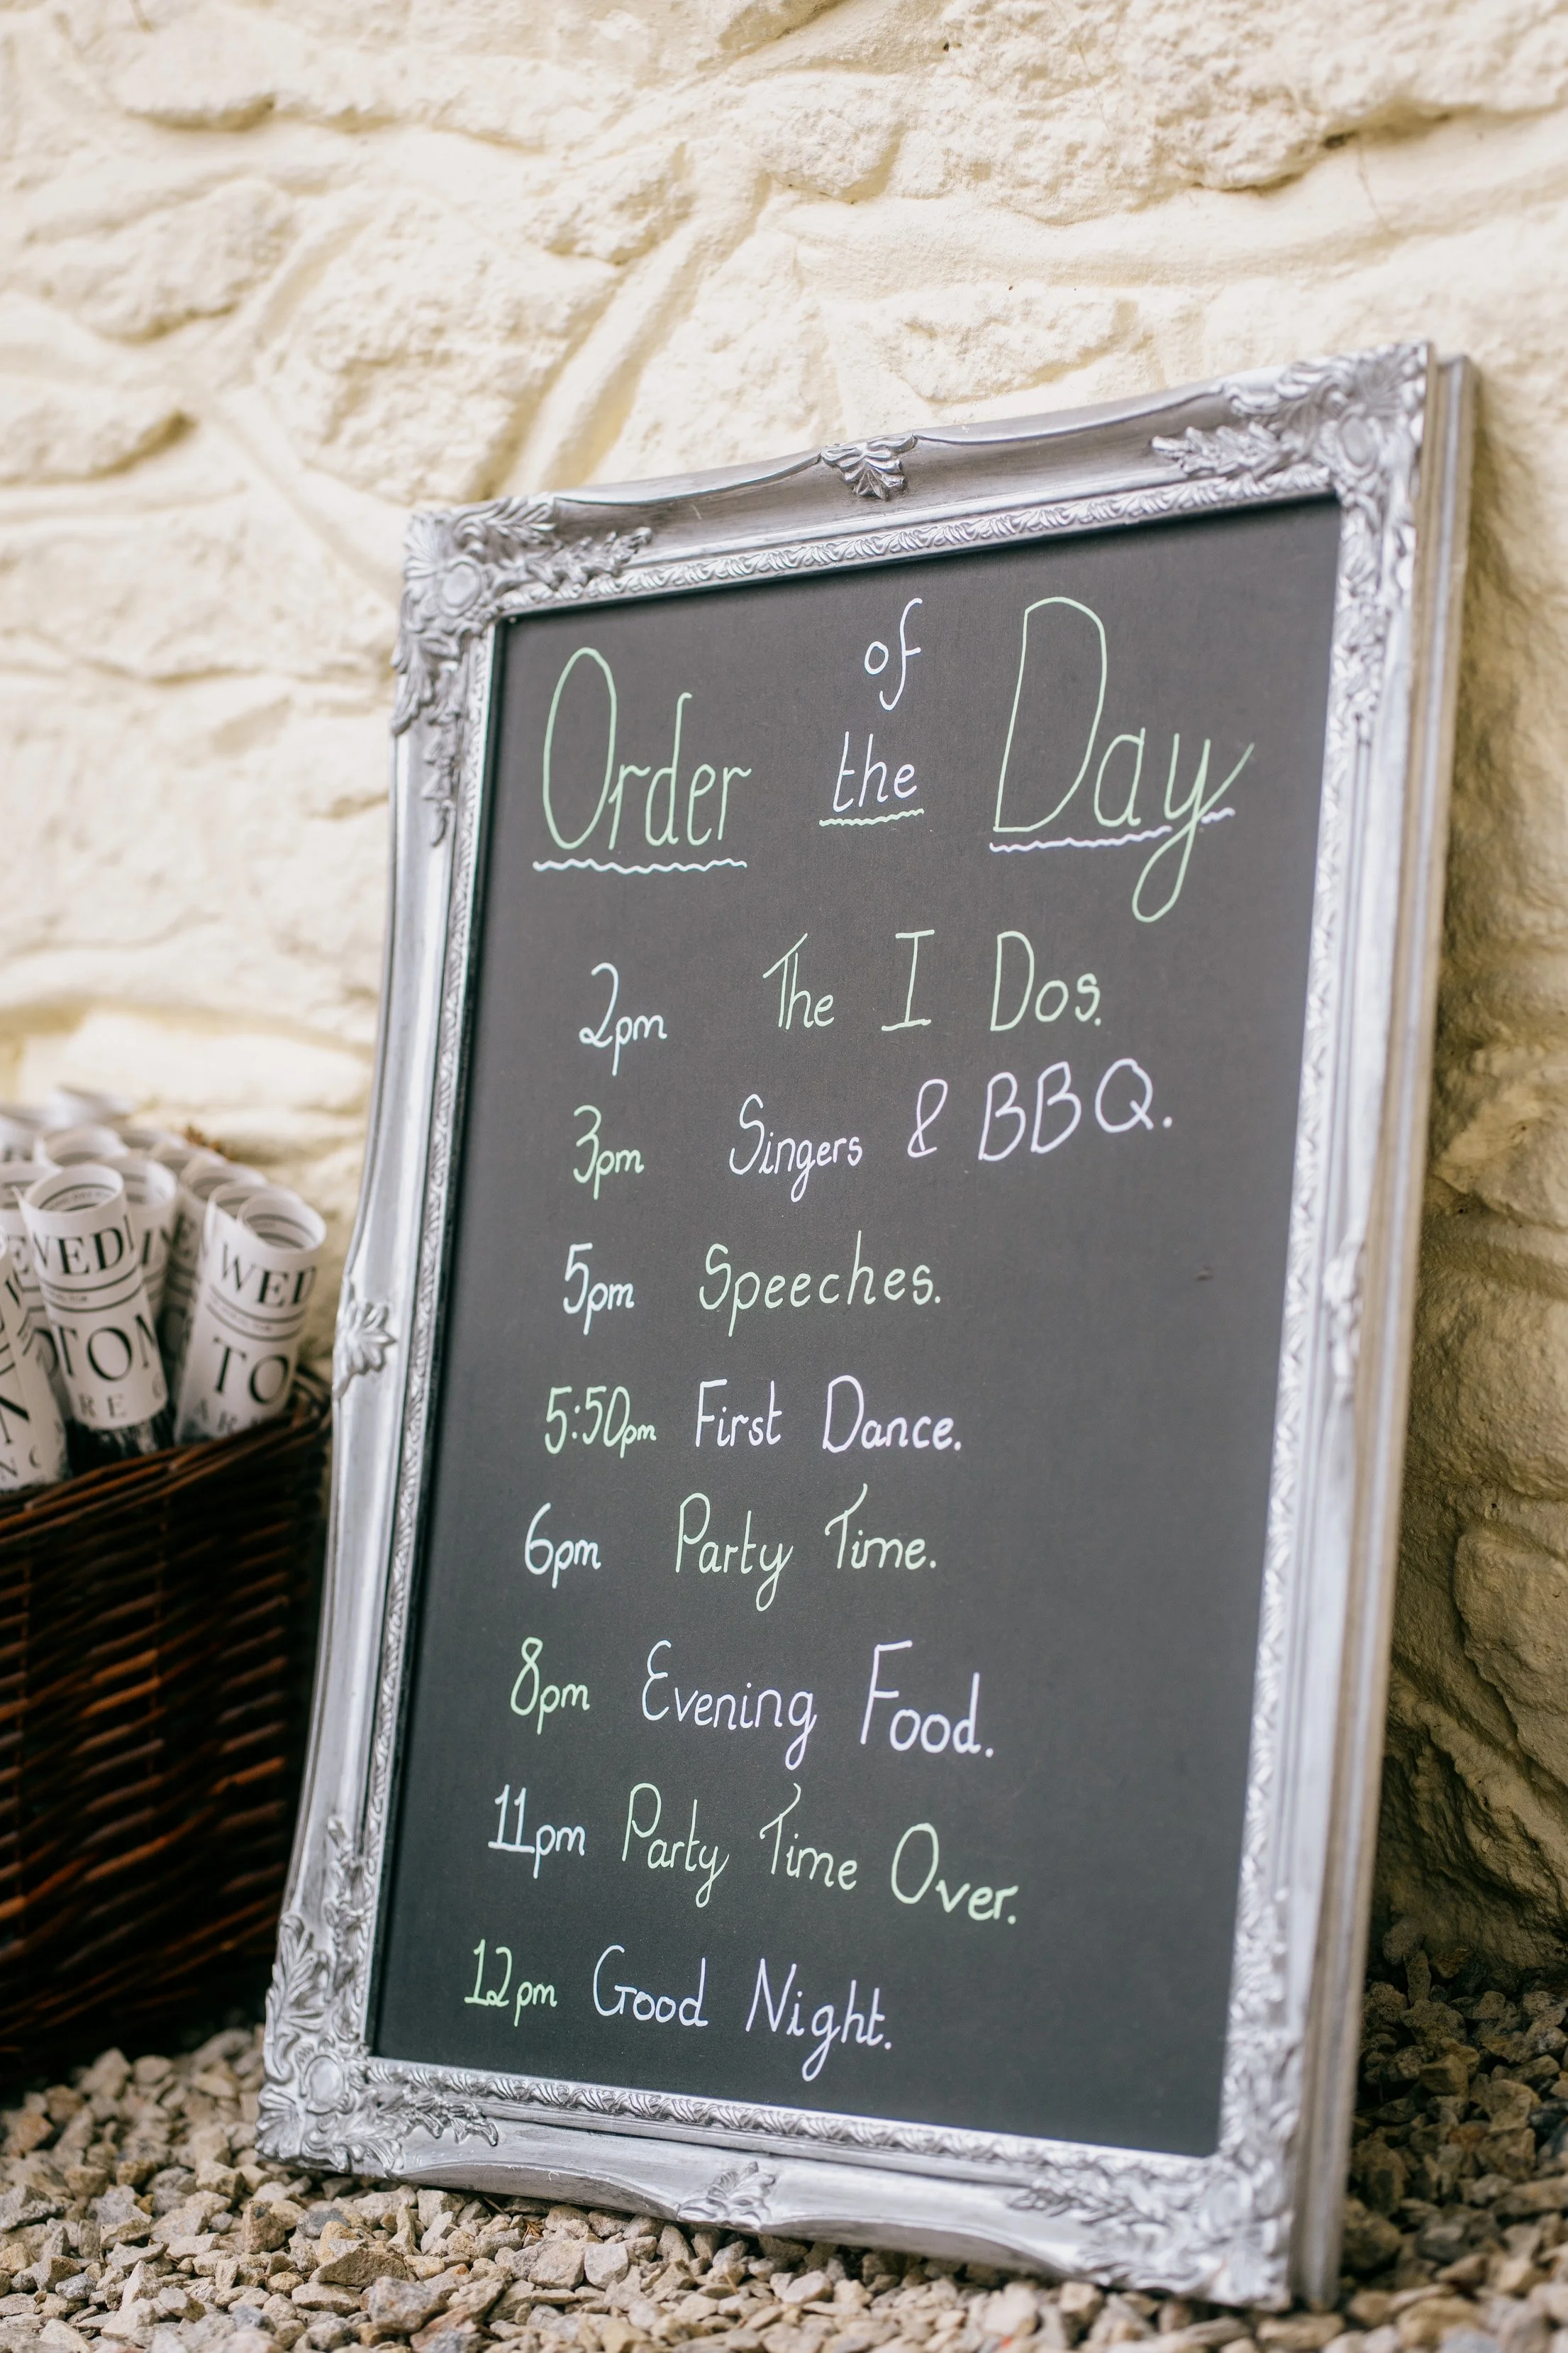 Order of the Day
2pm The I Dos.
3pm Singers & BBQ.
5pm Speeches.
5:50pm First Dance.
6pm Party Time.
8pm Evening Food.
11pm Party Time Over.
12pm Good Night.
WED
TO